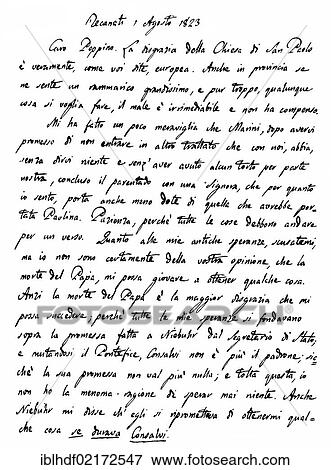 Recanati 1 Agosto 1823
Caro Peppino. La disgrazia della Chiesa di San Paolo
è veramente, come voi dite, europea. Anche in provincia se
ne sente un rammarico grandissimo, e pur troppo, qualunque
cosa si voglia fare, il male è irrimediabile e non ha compenso.
Mi ha fatto un poco meraviglia che Marini, dopo avervi
promesso di non entrare in altro trattato che con noi, abbia,
senza dirvi niente e senz'aver avuto alcun torto per parte
vostra, concluso il parentado con una Signora, che per quanto
io sento, porta anche meno dote di quelle che avrebbe por-
tata Paolina. Pazienza, perchè tutte le cose debbono andare
per un verso. Quanto alle mie antiche speranze, scusatemi,
ma io non sono certamente della vostra opinione, che la
morte del Papa, mi possa giovare a ottener qualche cosa.
Anzi la morte del Papa è la maggior disgrazia che mi
possa succedere; perchè tutte le mie speranze si fondavano
sopra la promessa fatta a Niebuhr dal Segretario di Stato,
e mutandosi il Pontefice, Consalvi non è più il padrone; sic-
chè la sua promessa non val più nulla; e tolta questa, io
non ho la menoma ragione di sperar mai niente. Anche
Niebuhr mi disse ch'egli si riprometteva di ottenermi qual-
che cosa se durava Consalvi.
FOTOSEARCH
iblhdf02172547 www.fotosearch.com